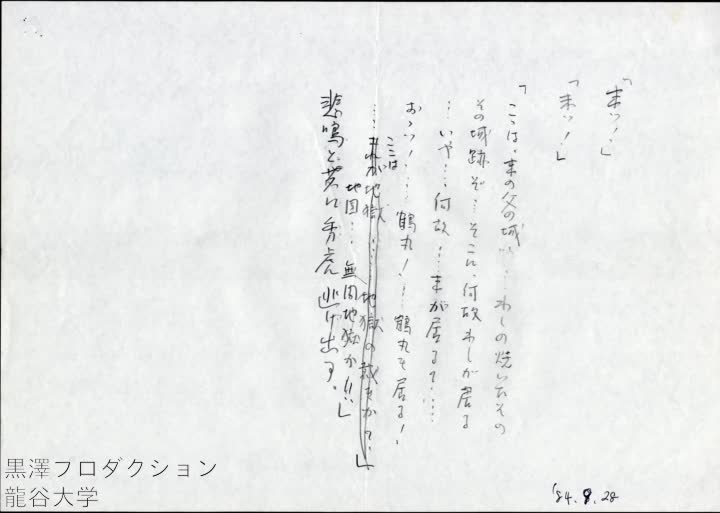 「末ッ！」
「末ッ！」
「ここは、末の父の城……わしの焼いたその
その城跡ぞ…そこに、何故わしが居る
…いや…何故…末が居る？……
おゝッ！……鶴丸！……鶴丸も居る！
ここは
……これが地獄……地獄の裁きか？」
地図…無間地獄か!!」
悲鳴と共に秀虎逃げ出す。
'84.9.28
黒澤プロダクション
龍谷大学